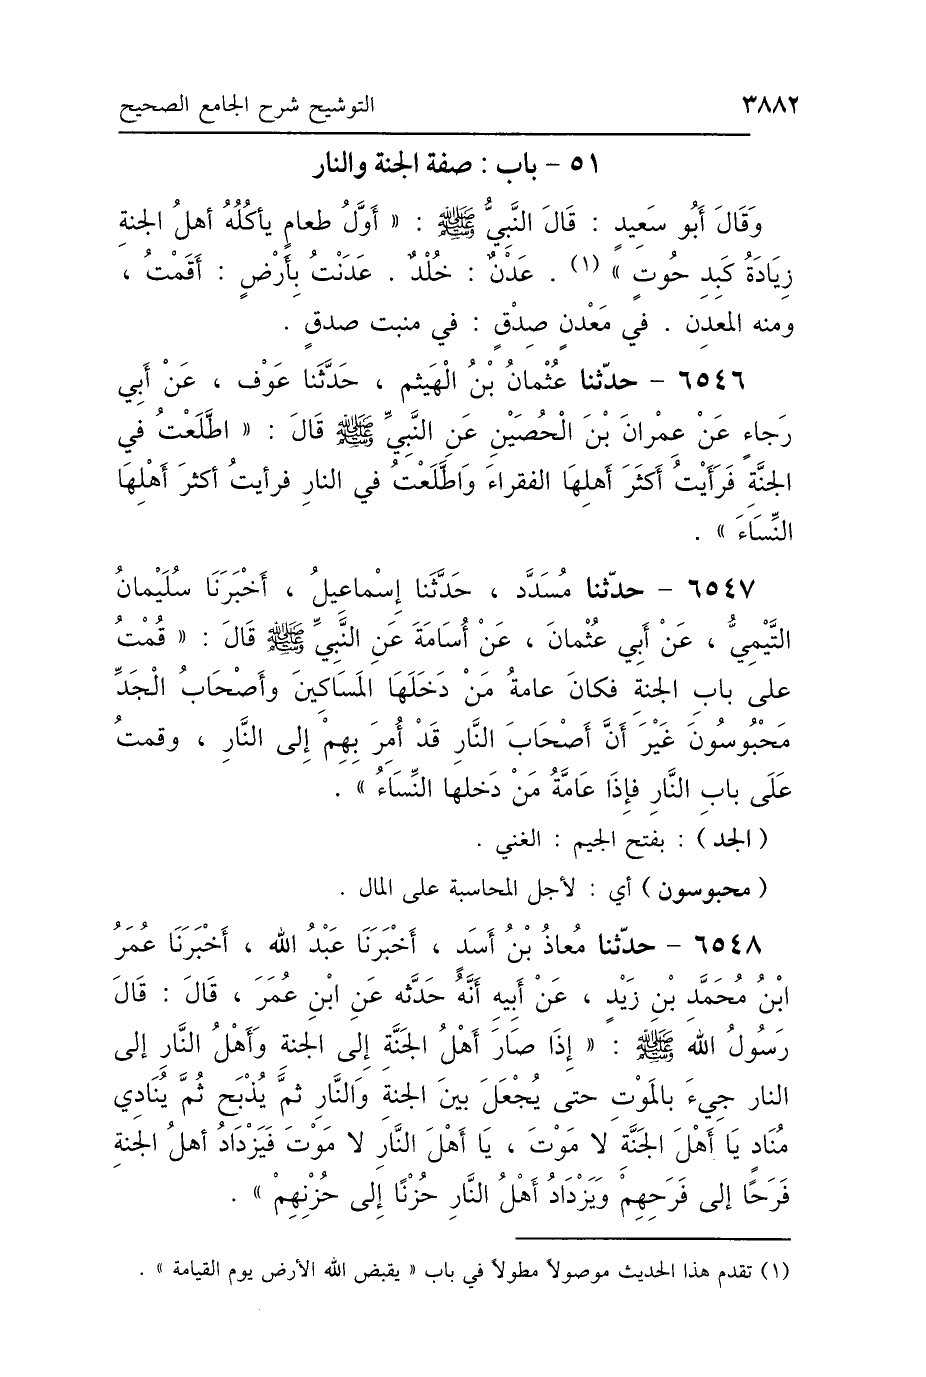 ٣٨٨٢ التوشيح شرح الجامع الصحيح
٥١ - باب : صفة الجنة والنار
وَقَالَ أَبُو سَعِيدٍ : قَالَ النَّبِيُّ ﷺ : « أَوَّلُ طعامٍ يأكُلُهُ أهلُ الجنةِ
زِيَادَةُ كَبِدِ حُوتٍ » (١) . عَدْنٌ : خُلْدٌ . عَدَنْتُ بِأَرْضٍ : أَقَمْتُ ،
ومنه المعدِن . في مَعْدنِ صِدْقٍ : في منبت صدقٍ .
٦٥٤٦ - حدّثنا عُثْمانُ بْنُ الْهَيثم ، حَدَّثَنا عَوْف ، عَنْ أَبِي
رَجاءٍ عَنْ عِمْرانَ بْنَ الْحُصَيْنِ عَنِ النَّبِيِّ ﷺ قَالَ : « اطَّلَعْتُ في
الجنَّةِ فَرَأَيْتُ أَكثَرَ أَهلِهَا الفقراءَ وَاطَّلَعْتُ في النارِ فرأيتُ أكثرَ أَهْلِهَا
النِّسَاءَ » .
٦٥٤٧ - حدّثنا مُسَدَّد ، حَدَّثَنا إِسْماعيلُ ، أَخْبَرَنَا سُلَيْمانُ
التَّيْمِيُّ ، عَنْ أَبي عثْمانَ ، عَنْ أُسَامَةَ عَنِ النَّبِيِّ ﷺ قَالَ : « قُمْتُ
على بابِ الجنةِ فكانَ عامةُ مَنْ دَخَلَهَا المَسَاكِينَ وأَصْحَابُ الْجَدِّ
مَحْبُوسُونَ غَيْرَ أَنَّ أَصْحَابَ النَّارِ قَدْ أُمِرَ بِهِمْ إِلى النَّارِ ، وقمتُ
عَلَى بابِ النَّارِ فإِذَا عَامَّةُ مَنْ دَخلها النِّسَاءُ » .
( الجد ) : بفتح الجيم : الغني .
( محبوسون ) أي : لأجل المحاسبة على المال .
٦٥٤٨ - حدّثنا مُعاذُ بْنُ أَسَد ، أَخْبَرَنَا عَبْدُ الله ، أَخْبَرَنَا عُمَرُ
ابْنُ مُحَمَّدِ بْنِ زَيْدٍ ، عَنْ أَبِيهِ أَنَّهُ حَدَّثه عَنِ ابْنِ عُمَرَ ، قَالَ : قَالَ
رَسُولُ الله ﷺ : « إِذَا صَارَ أَهْلُ الجَنَّةِ إِلى الجنةِ وَأَهْلُ النَّارِ إِلى
النار جِيءَ بالمَوْتِ حتى يُجْعَلَ بينَ الجنةِ وَالنَّارِ ثمَّ يُذْبَح ثُمَّ يُنَادِي
مُنَادٍ يَا أَهْلَ الجَنَّةِ لا مَوْتَ ، يَا أَهْلَ النَّارِ لا مَوْتَ فَيَزْدَادُ أهلُ الجنةِ
فَرَحًا إِلى فَرَحِهِمْ وَيَزْدَادُ أَهْلُ النَّارِ حُزْنًا إِلى حُزْنِهِمْ » .
(١) تقدم هذا الحديث موصولاً مطولاً في باب « يقبض الله الأرض يوم القيامة » .